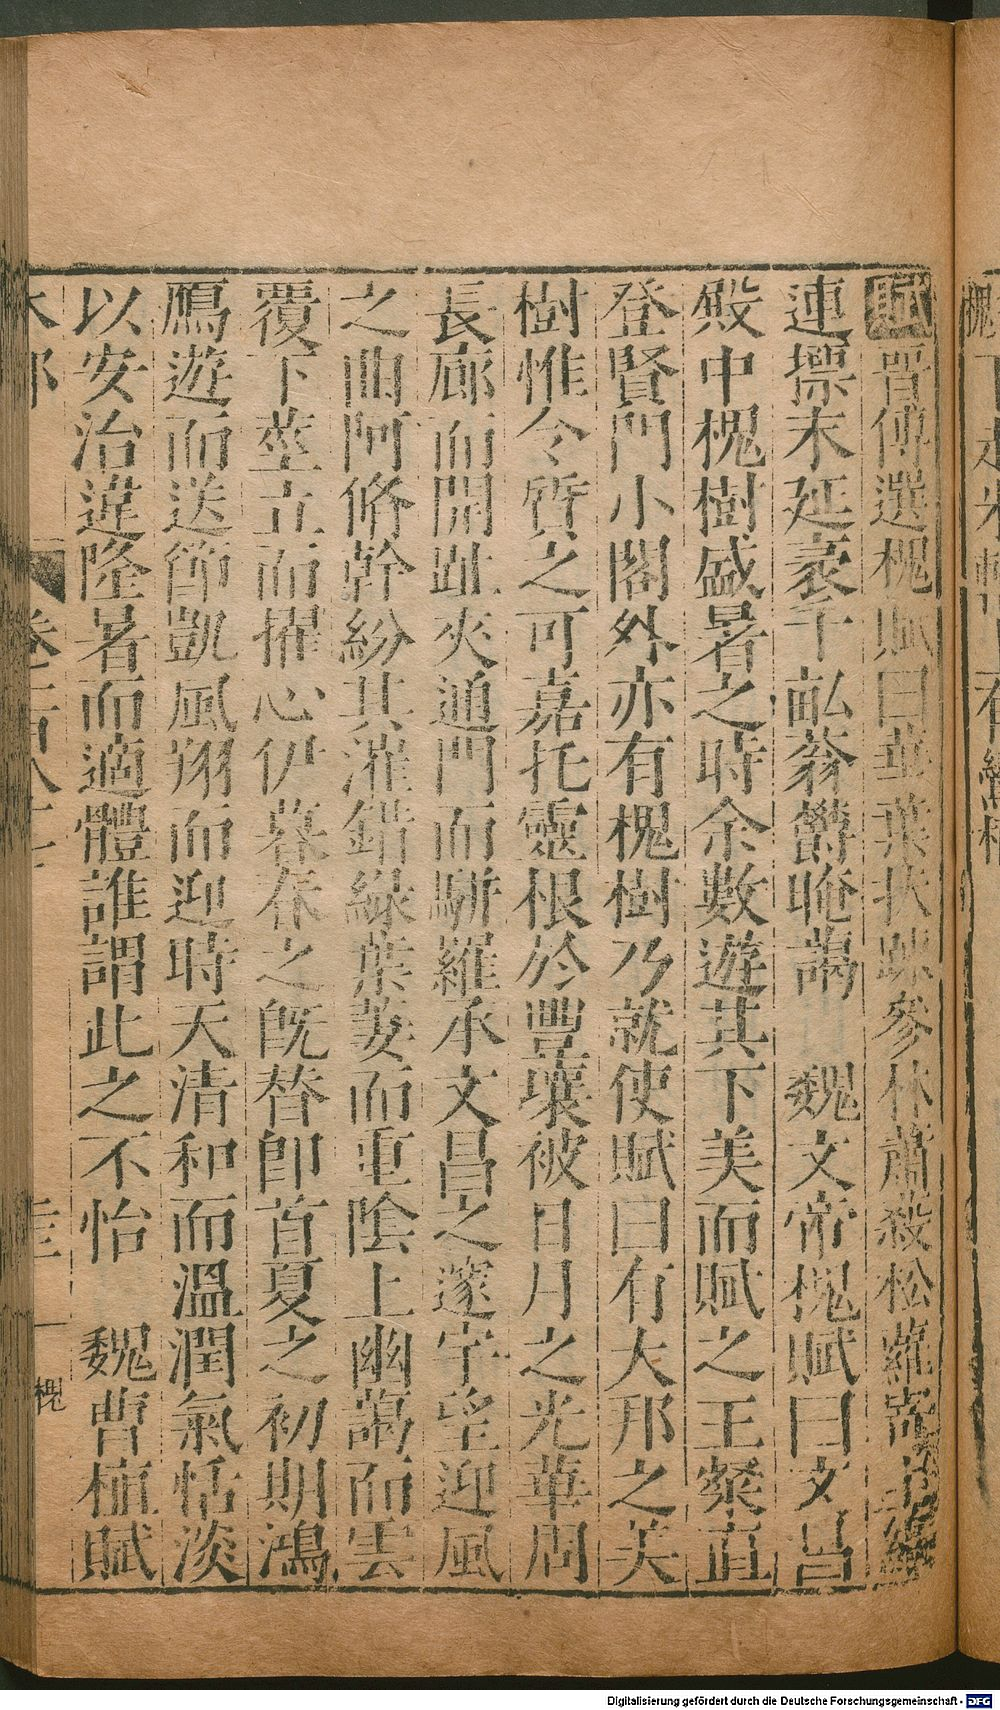 賦晉傅選槐賦曰華葉扶疎參林蕭殺松蘿寄
連摽末延袤千畝蓊欝晻藹 魏文帝槐賦曰文昌
殿中槐樹盛暑之時余數遊其下美而賦之王粲直
登賢門小閣外亦有槐樹乃就使賦曰有大邦之美
樹惟令質之可嘉托靈根於豐壤被日月之光華周
長廊而開趾夾通門而駢羅承文昌之邃宇望迎風
之曲阿脩幹紛其漼錯綠葉萋而重陰上幽藹而雲
覆下莖立而擢心伊暮春之旣替卽首夏之初期鴻
鴈遊而送節凱風翔而迎時天清和而溫潤氣恬淡
以安治違隆暑而適體誰謂此之不怡 魏曹植賦
木部 卷 槐
Digitalisierung gefördert durch die Deutsche Forschungsgemeinschaft - DFG